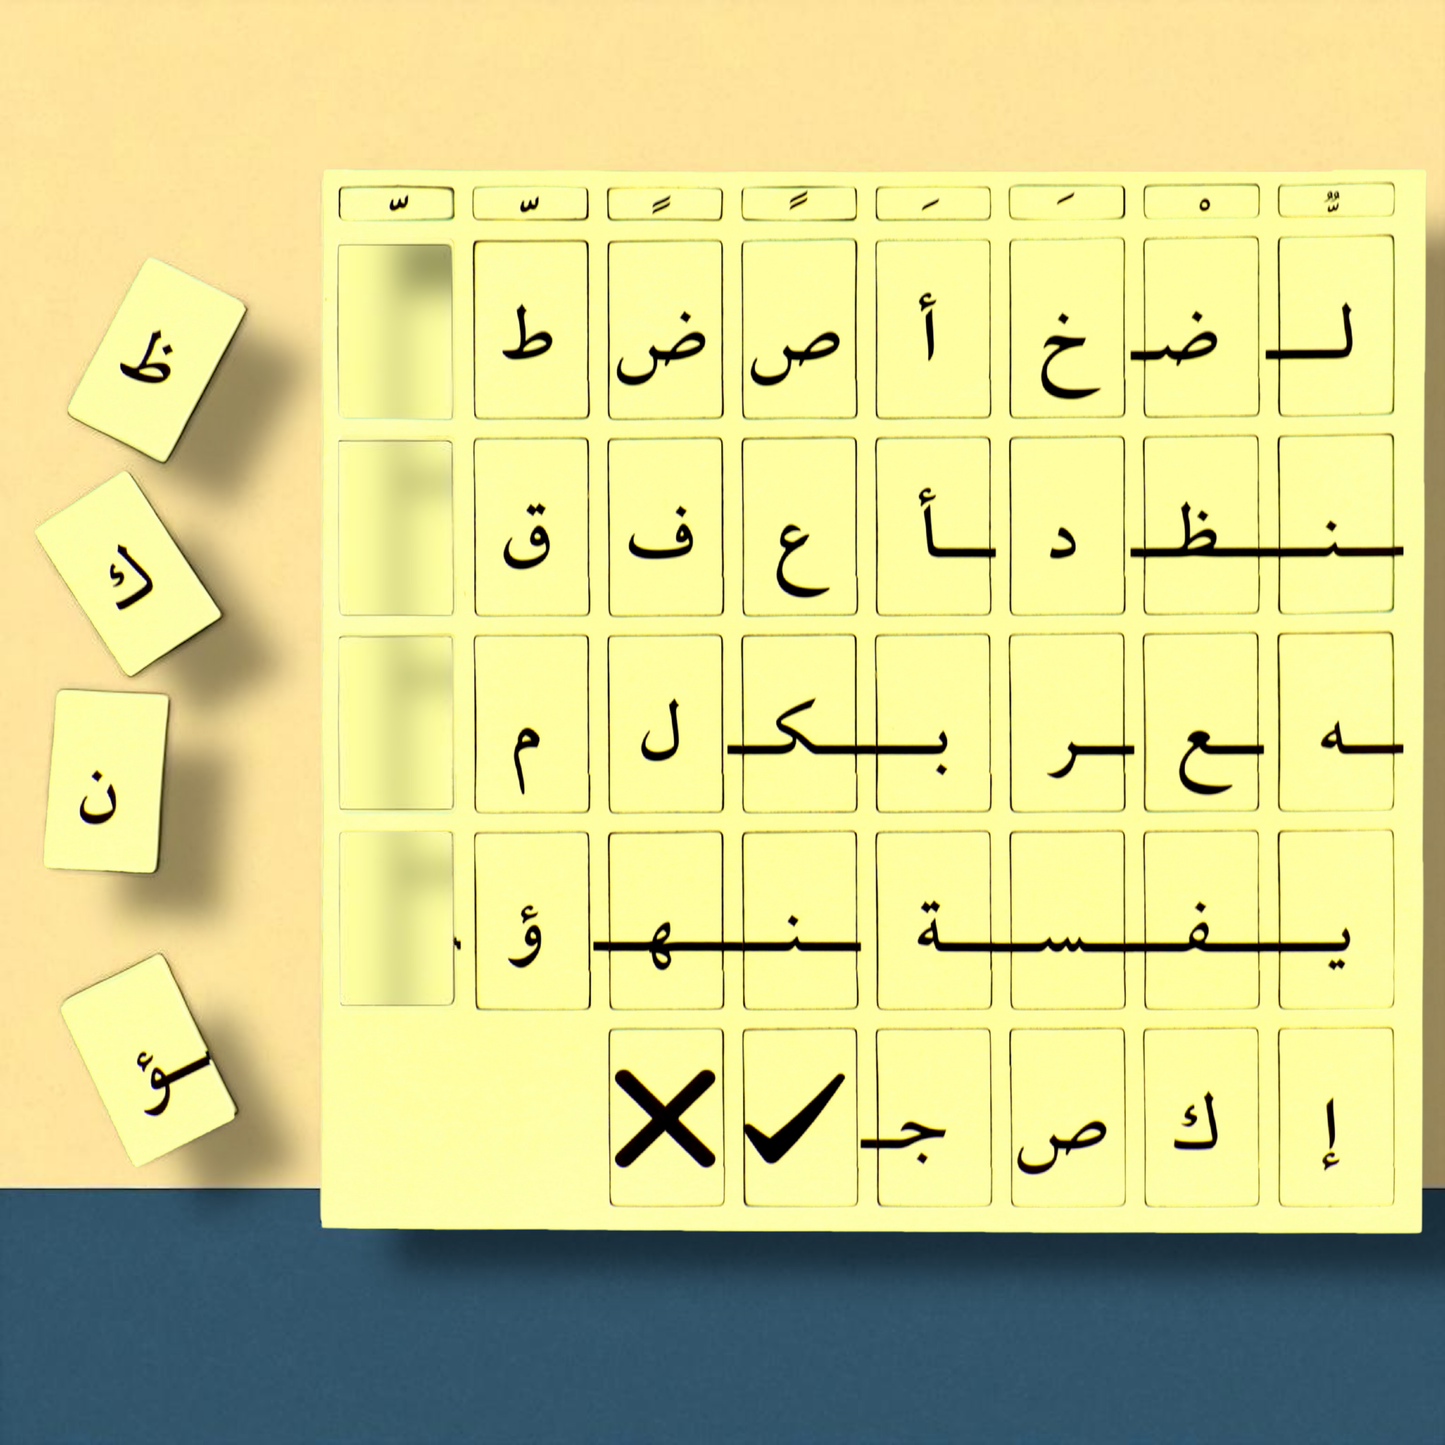 ـٌّ ـْ ـَ ـَ ـً ـً ـّ ـّ
لـ ضـ خ أ ص ض ط
ـنـ ـظـ د ـأ ع ف ق
ـه ـع ـر بـ ـكـ ل م
يـ ـفـ ـسـ ـة ـنـ ـهـ ؤ
إ ك ص جـ ✓ ✗
ظ
ك
ن
ـؤ